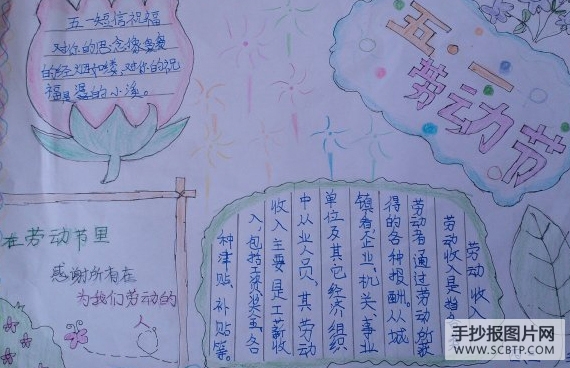 五一短信祝福
对你的思念像袅袅
的轻烟如缕，对你的祝
福是 潺的小溪。
五.一
劳动节
在劳动节里
感谢所有在
为我们劳动的
人
劳动收入
劳动收入是指
劳动者通过劳动所获
得的各种报酬。从城
镇看，企业、机关、事业
单位及其它经济组织
中从业人员，其劳动
收入主要是工薪收
入，包括工资、奖金、各
种津贴、补贴等。
手抄报图片网
WWW.SCBTP.COM